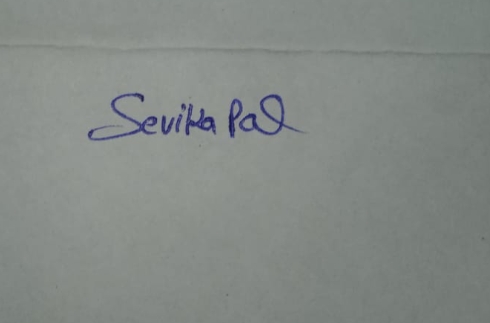 Sevika Pal